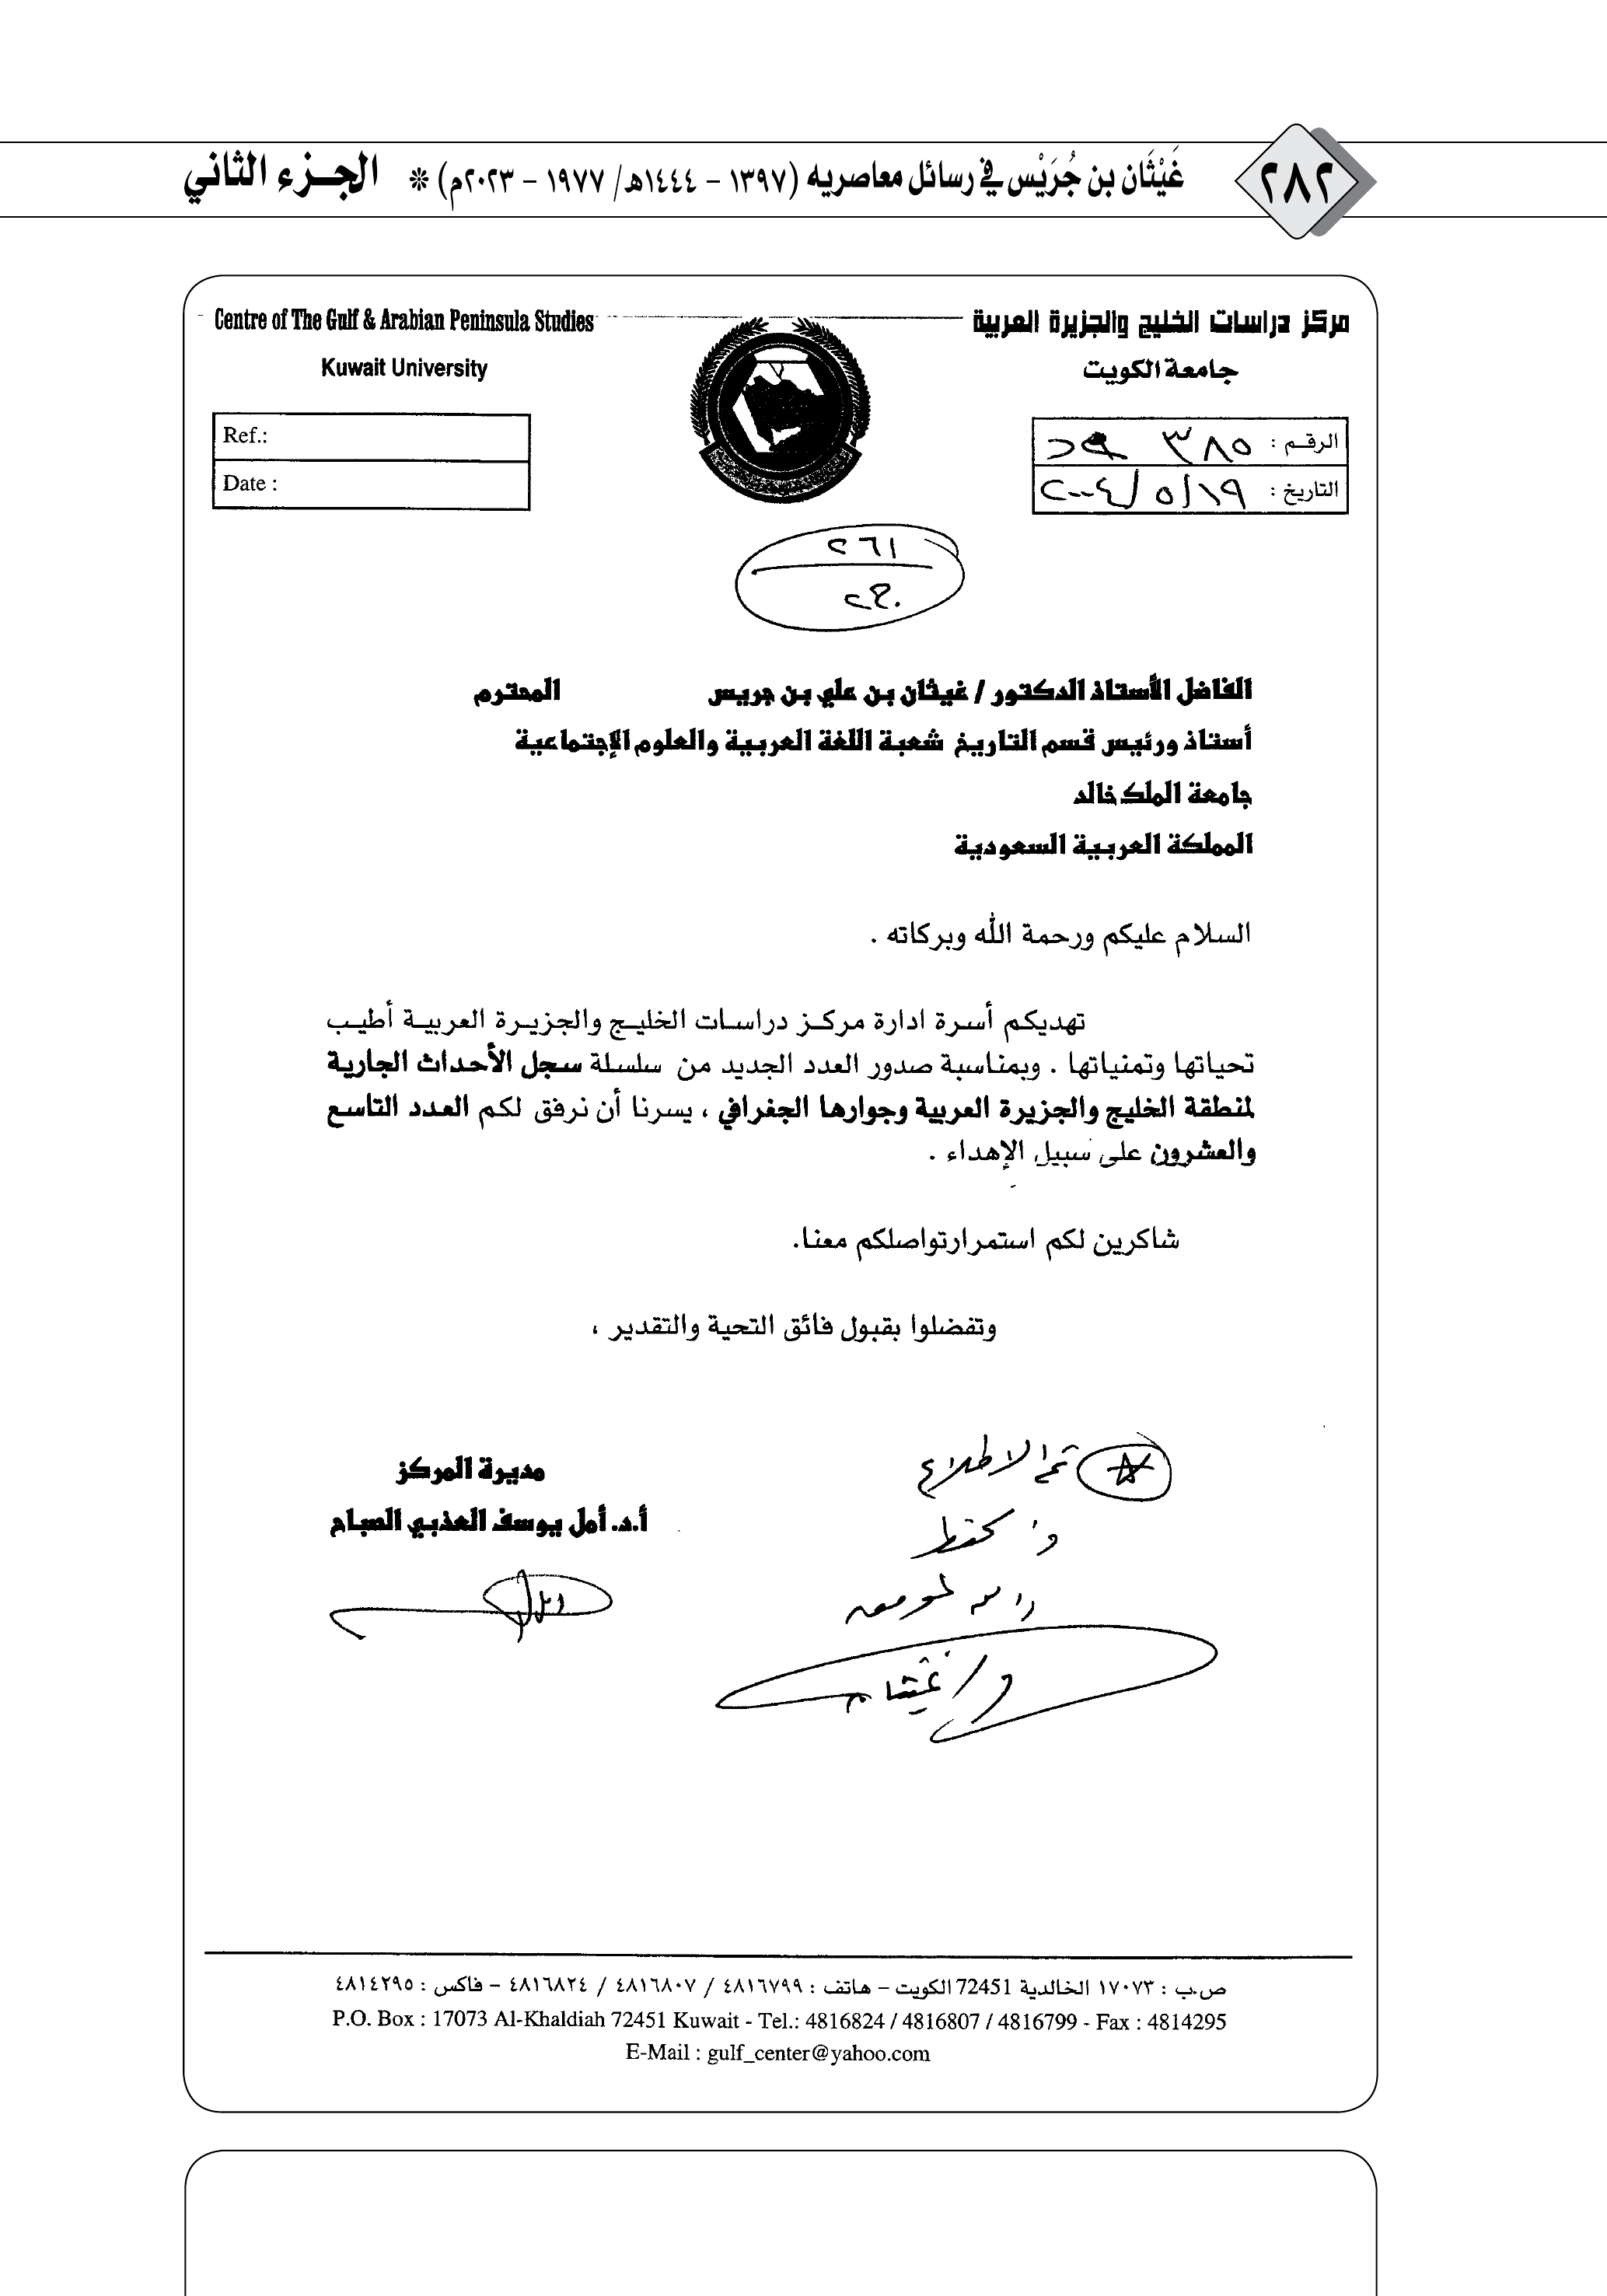 ٢٨٢
غَيْثَان بن جُرَيْس في رسائل معاصريه (١٣٩٧ - ١٤٤٤هـ/ ١٩٧٧ - ٢٠٢٣م) * الجـزء الثاني
مركز دراسات الخليج والجزيرة العربية
جامعة الكويت
Centre of The Gulf & Arabian Peninsula Studies
Kuwait University
الرقم : ٣٨٥
التاريخ : ١٩/٥/٢٠٠٤
Ref.:
Date :
٢٦١
الفاضل الأستاذ الدكتور / غيثان بن علي بن جريس المحترم
أستاذ ورئيس قسم التاريخ شعبة اللغة العربية والعلوم الإجتماعية
جامعة الملك خالد
المملكة العربية السعودية
السلام عليكم ورحمة الله وبركاته .
تهديكم أسرة ادارة مركز دراسات الخليج والجزيرة العربية أطيب
تحياتها وتمنياتها . وبمناسبة صدور العدد الجديد من سلسلة سجل الأحداث الجارية
لمنطقة الخليج والجزيرة العربية وجوارها الجغرافي ، يسرنا أن نرفق لكم العدد التاسع
والعشرون على سبيل الإهداء .
شاكرين لكم استمرارتواصلكم معنا.
وتفضلوا بقبول فائق التحية والتقدير ،
مديرة المركز
أ.د. أمل يوسف العذبي الصباح
تم الاطلاع
د/ غيثان
ص.ب : ١٧٠٧٣ الخالدية 72451 الكويت - هاتف : ٤٨١٦٧٩٩ / ٤٨١٦٨٠٧ / ٤٨١٦٨٢٤ - فاكس : ٤٨١٤٢٩٥
P.O. Box : 17073 Al-Khaldiah 72451 Kuwait - Tel.: 4816824 / 4816807 / 4816799 - Fax : 4814295
E-Mail : gulf_center@yahoo.com